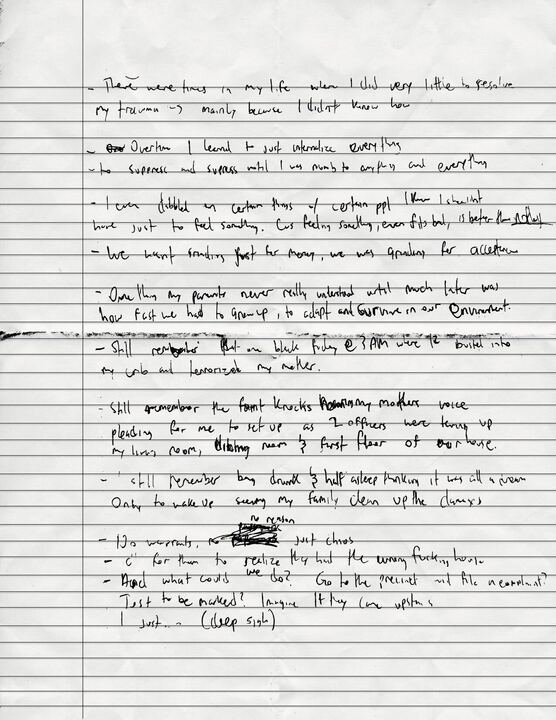 - There were times in my life when I did very little to resolve
my trauma -> mainly because I didn't know how
- Overtime I learned to just internalize everything
- to suppress and supress until I was numb to anything and everything
- I even dibbled in certain things w/ certain ppl I know I shouldnt
have just to feel something. Cus feeling something, even if its bad, is better than nothing
- We want grinding just for money, we was grinding for acceptance
- One thing my parents never really understood until much later was
how fast we had to grow up, to adapt and survive in our environment.
- Still remember that one black friday @ 3 AM were 12 busted into
my crib and terrorized my mother.
- Still remember the faint knocks my mothers voice
pleading for me to get up as 2 officers were tearing up
my living room, dining room & first floor of our house.
- I still remember being drunk & half asleep thinking it was all a dream
Only to wake up seeing my family clean up the damages
- No warrants, no reason just chaos
- for them to realize they had the wrong fucking house
- And what could we do? Go to the precinct and file a complaint?
Just to be marked? Imagine if they came upstairs
I just... (deep sigh)